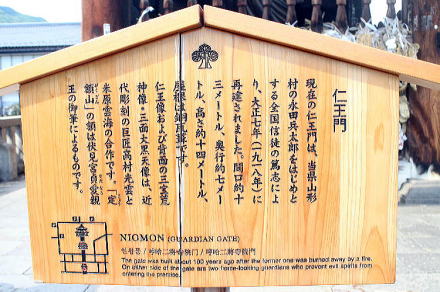 仁王門
現在の仁王門は、当県山形
村の永田兵太郎をはじめと
する全国信徒の篤志によ
り、大正七年(一九一八)に
再建されました。間口約十
三メートル、奥行約七メー
トル、高さ約十四メートル、
屋根は銅瓦葺です。
仁王像および背面の三宝荒
神像・三面大黒天像は、近
代彫刻の巨匠高村光雲と
米原雲海の合作です。「定
額山」の額は伏見宮貞愛親
王の御筆によるものです。
NIOMON (GUARDIAN GATE)
The gate was built about 100 years ago after the former one was burned away by a fire.
On either side of the gate are two fierce-looking guardians who prevent evil spirits from
entering the precinct.